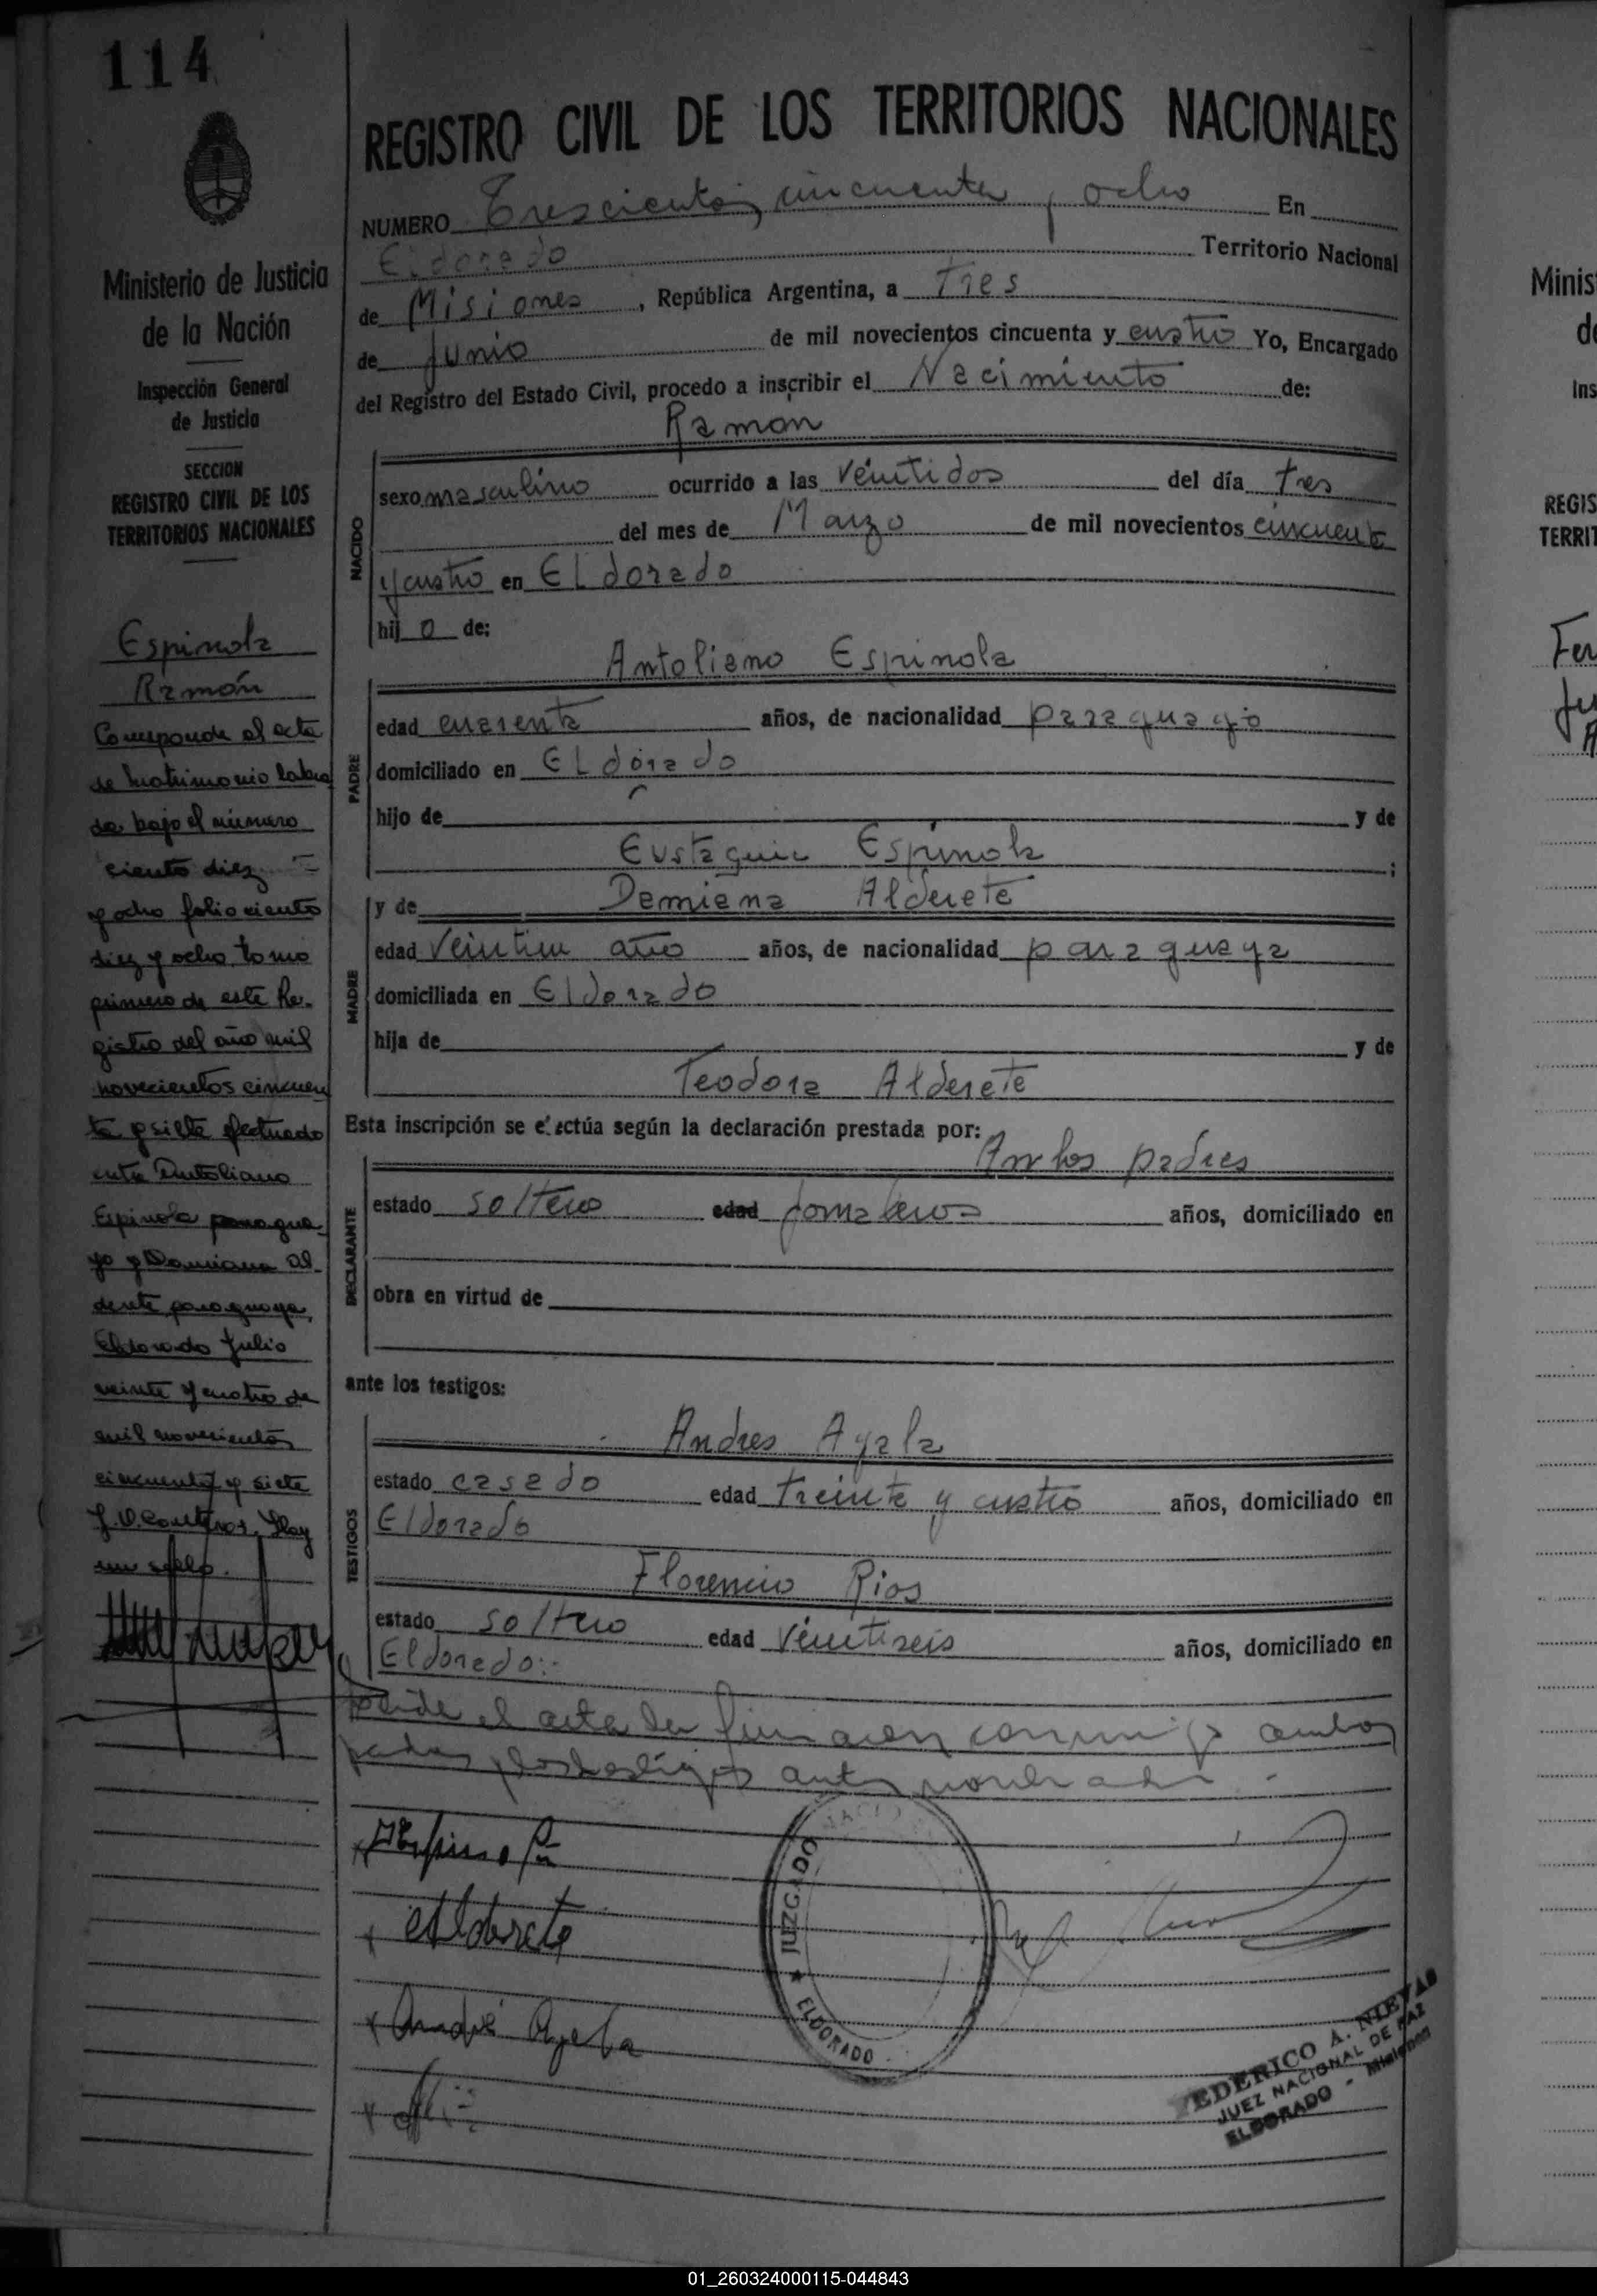 114
Ministerio de Justicia
de la Nación
Inspección General
de Justicia
SECCION
REGISTRO CIVIL DE LOS
TERRITORIOS NACIONALES
Espinola
Ramón
Corresponde al acta
de matrimonio labra
da bajo el número
ciento diez =
y ocho folio ciento
diez y ocho tomo
primero de este Re-
gistro del año mil
novecientos cincuen
ta y siete efectuado
entre Antoliano
Espinola paragua
yo y Damiana Al-
derete paraguaya,
Eldorado Julio
veinte y cuatro de
mil novecientos
cincuenta y siete
Hay
un sello.
REGISTRO CIVIL DE LOS TERRITORIOS NACIONALES
NUMERO Trescientos cincuenta y ocho En
Eldorado Territorio Nacional
de Misiones, República Argentina, a Tres
de Junio de mil novecientos cincuenta y cuatro Yo, Encargado
del Registro del Estado Civil, procedo a inscribir el Nacimiento de:
Ramon
NACIDO
sexo masculino ocurrido a las veintidos del día tres
del mes de Marzo de mil novecientos cincuenta
y cuatro en ELdorado
hijo de:
Antoliano Espinola
PADRE
edad cuarenta años, de nacionalidad paraguayo
domiciliado en ELdorado
hijo de y de
Eustaquia Espinola ;
y de Damiana Alderete
MADRE
edad veintiun año años, de nacionalidad paraguaya
domiciliada en Eldorado
hija de y de
Teodora Alderete
Esta inscripción se efectúa según la declaración prestada por:
Ambos padres
DECLARANTE
estado soltero edad jornaleros años, domiciliado en
obra en virtud de
ante los testigos:
Andres Ayala
TESTIGOS
estado casado edad treinta y cuatro años, domiciliado en
Eldorado
Florencio Rios
estado soltero edad veintiseis años, domiciliado en
Eldorado:-
el acta la firmaron conmigo ambos
padres y los testigos antes nombrados -
Espinola
Alderete
André Ayala
JUZGADO
ELDORADO
FEDERICO A. NIEVAS
JUEZ NACIONAL DE PAZ
ELDORADO - Misiones
Minis
de
Ins
REGIS
TERRIT
Fer
01_260324000115-044843